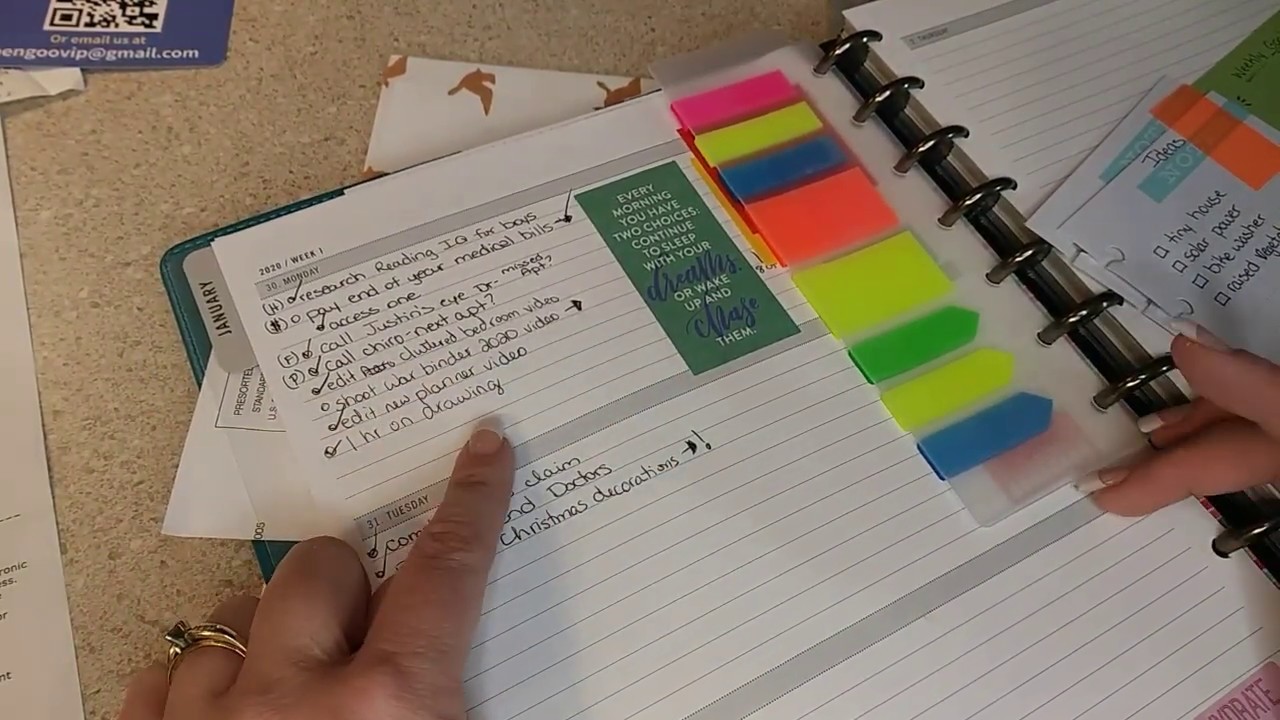 Or email us at
engoovip@gmail.com
2020 / WEEK 1
30 MONDAY
(H) research Reading IQ for boys
($) pay end of year medical bills →
access one
(F) call Justin's eye Dr- missed Apt.
(P) call chiro-next apt?
edit cluttered bedroom video
shoot war binder 2020 video →
edit new planner video
1 hr on drawing
31 TUESDAY
claim
Doctors
Christmas decorations → !
JANUARY
PRESORTED
STANDARD
U.S.
005
EVERY
MORNING
YOU HAVE
TWO CHOICES:
CONTINUE
TO SLEEP
WITH YOUR
dreams,
OR WAKE
UP AND
Chase
THEM.
2 THURSDAY
Weekly
Ideas
tiny house
solar power
bike washer
raised